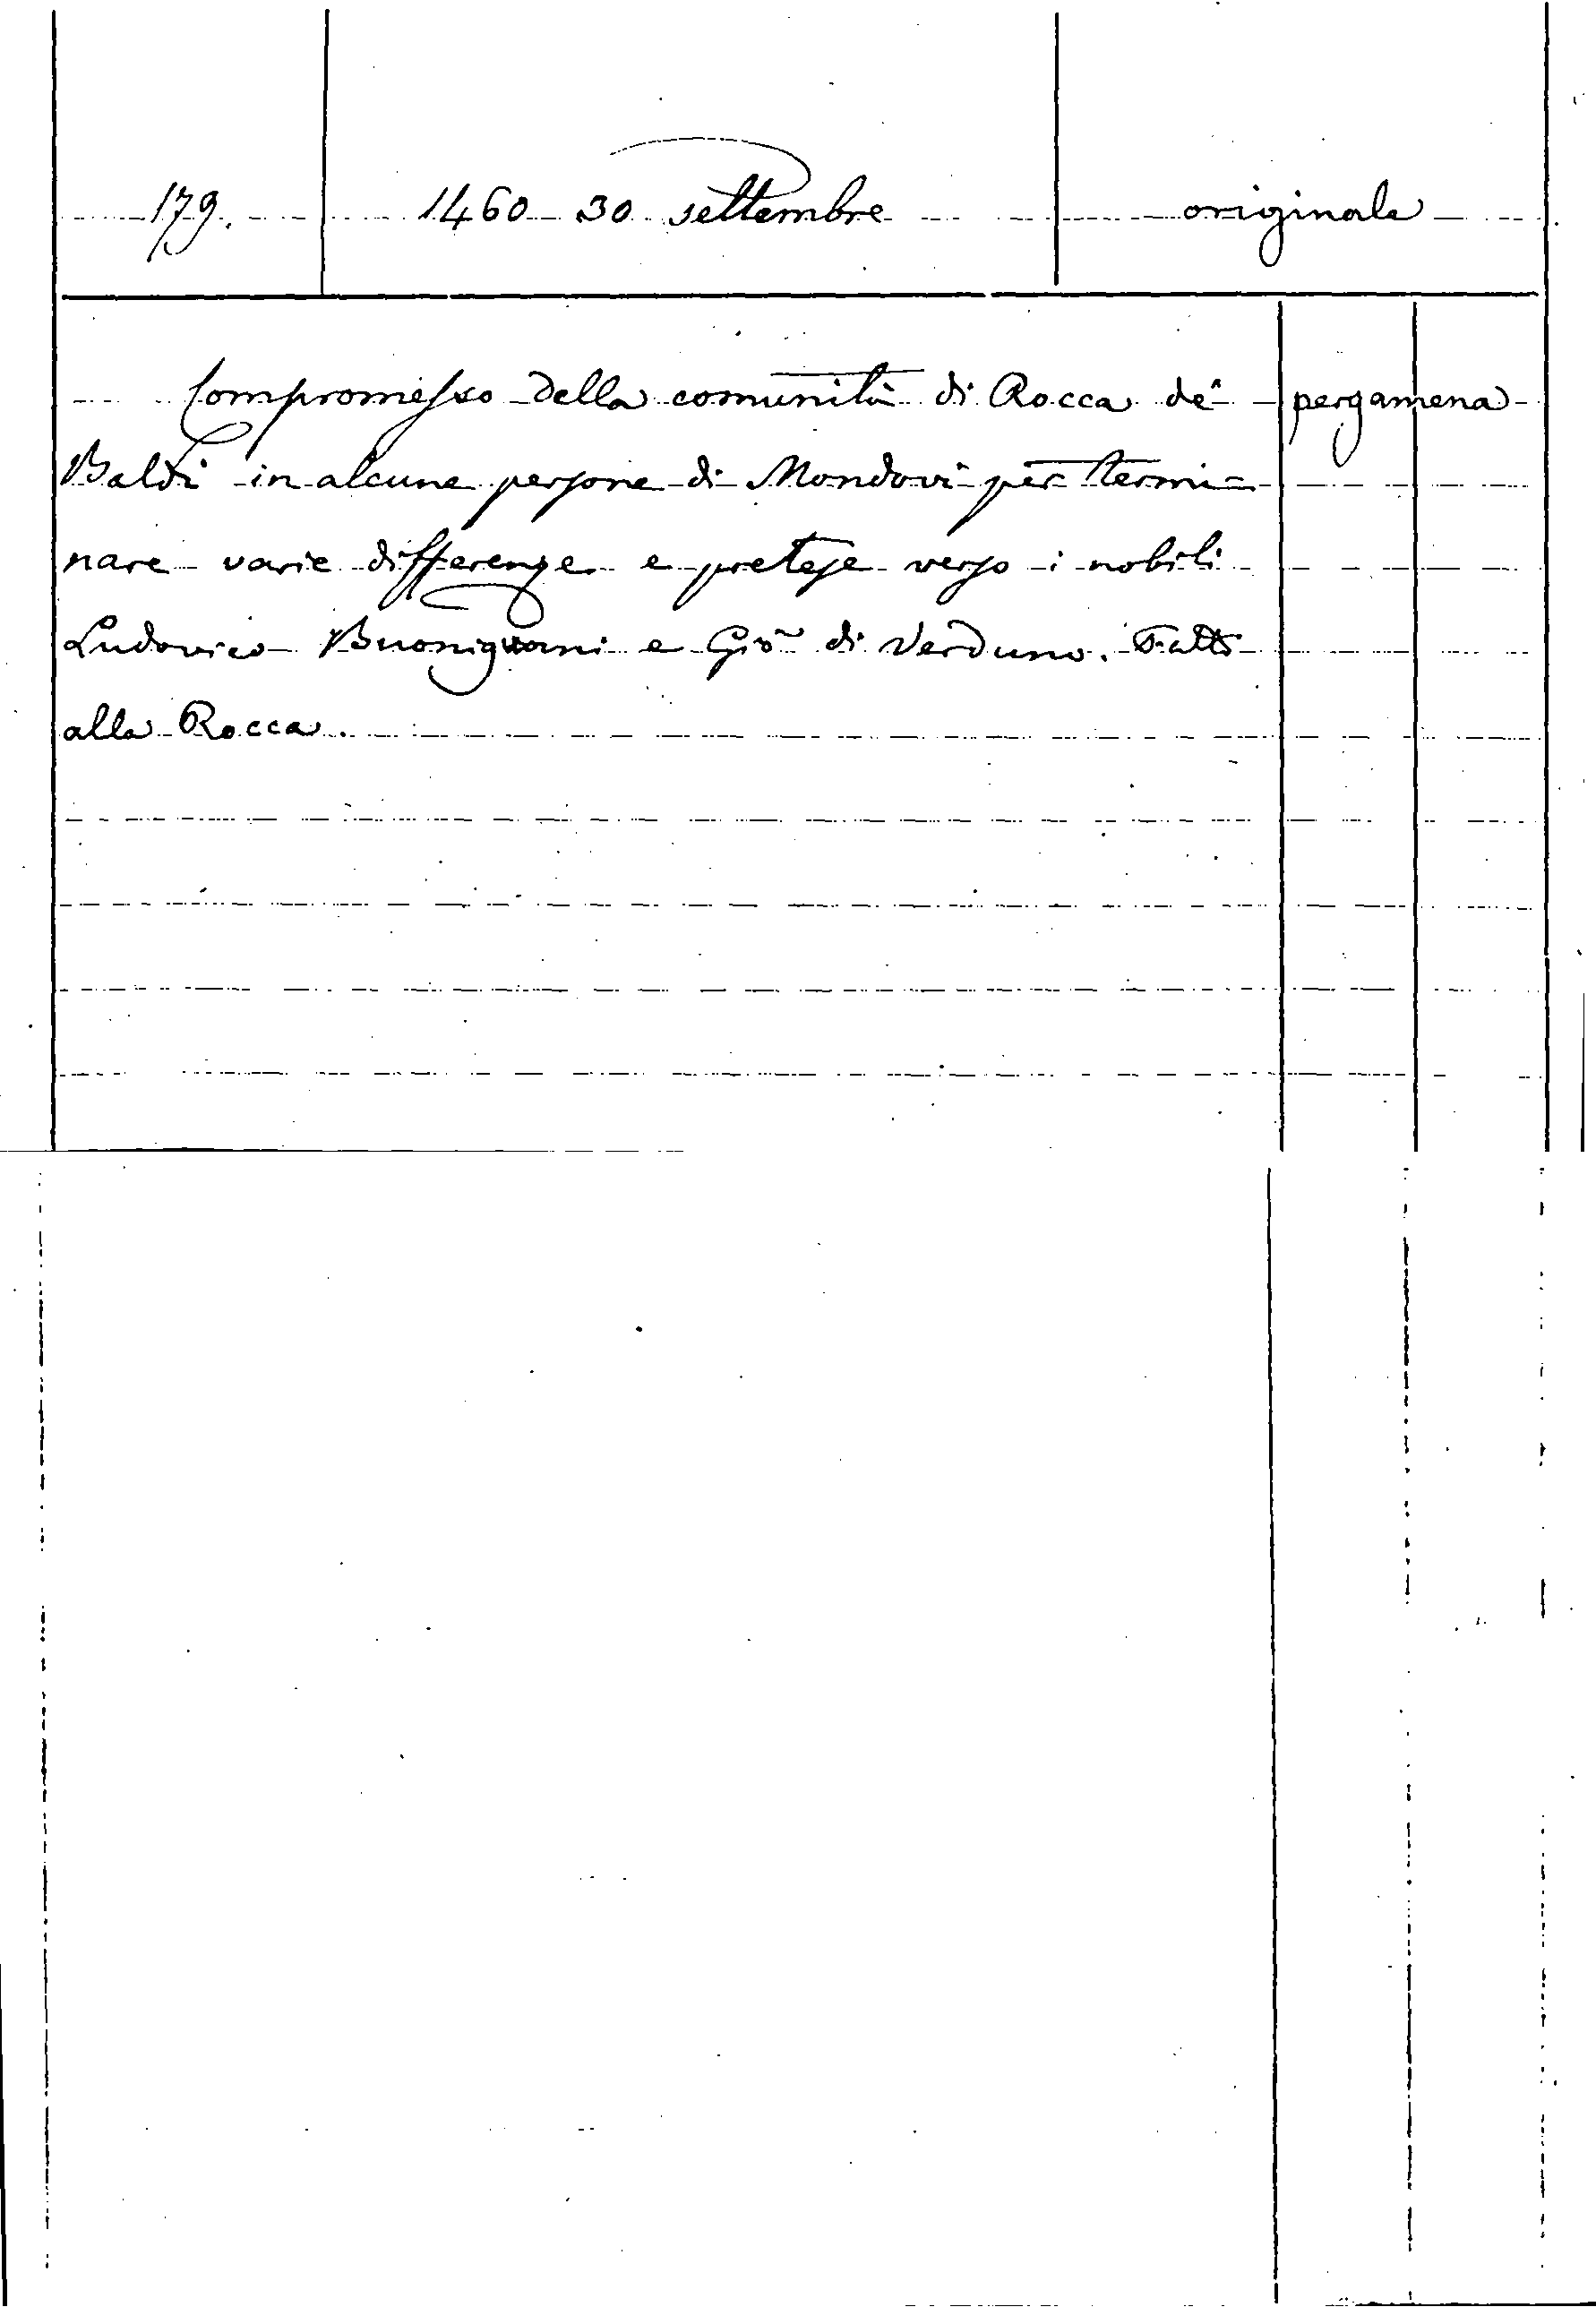 179. 1460 30 settembre originale
Compromesso della comunità di Rocca de' pergamena
Baldi in alcune persone di Mondovì per termi=
nare varie differenze e pretese verso i nobili
Ludovico e Giō di Verduno. Fatto
alla Rocca.